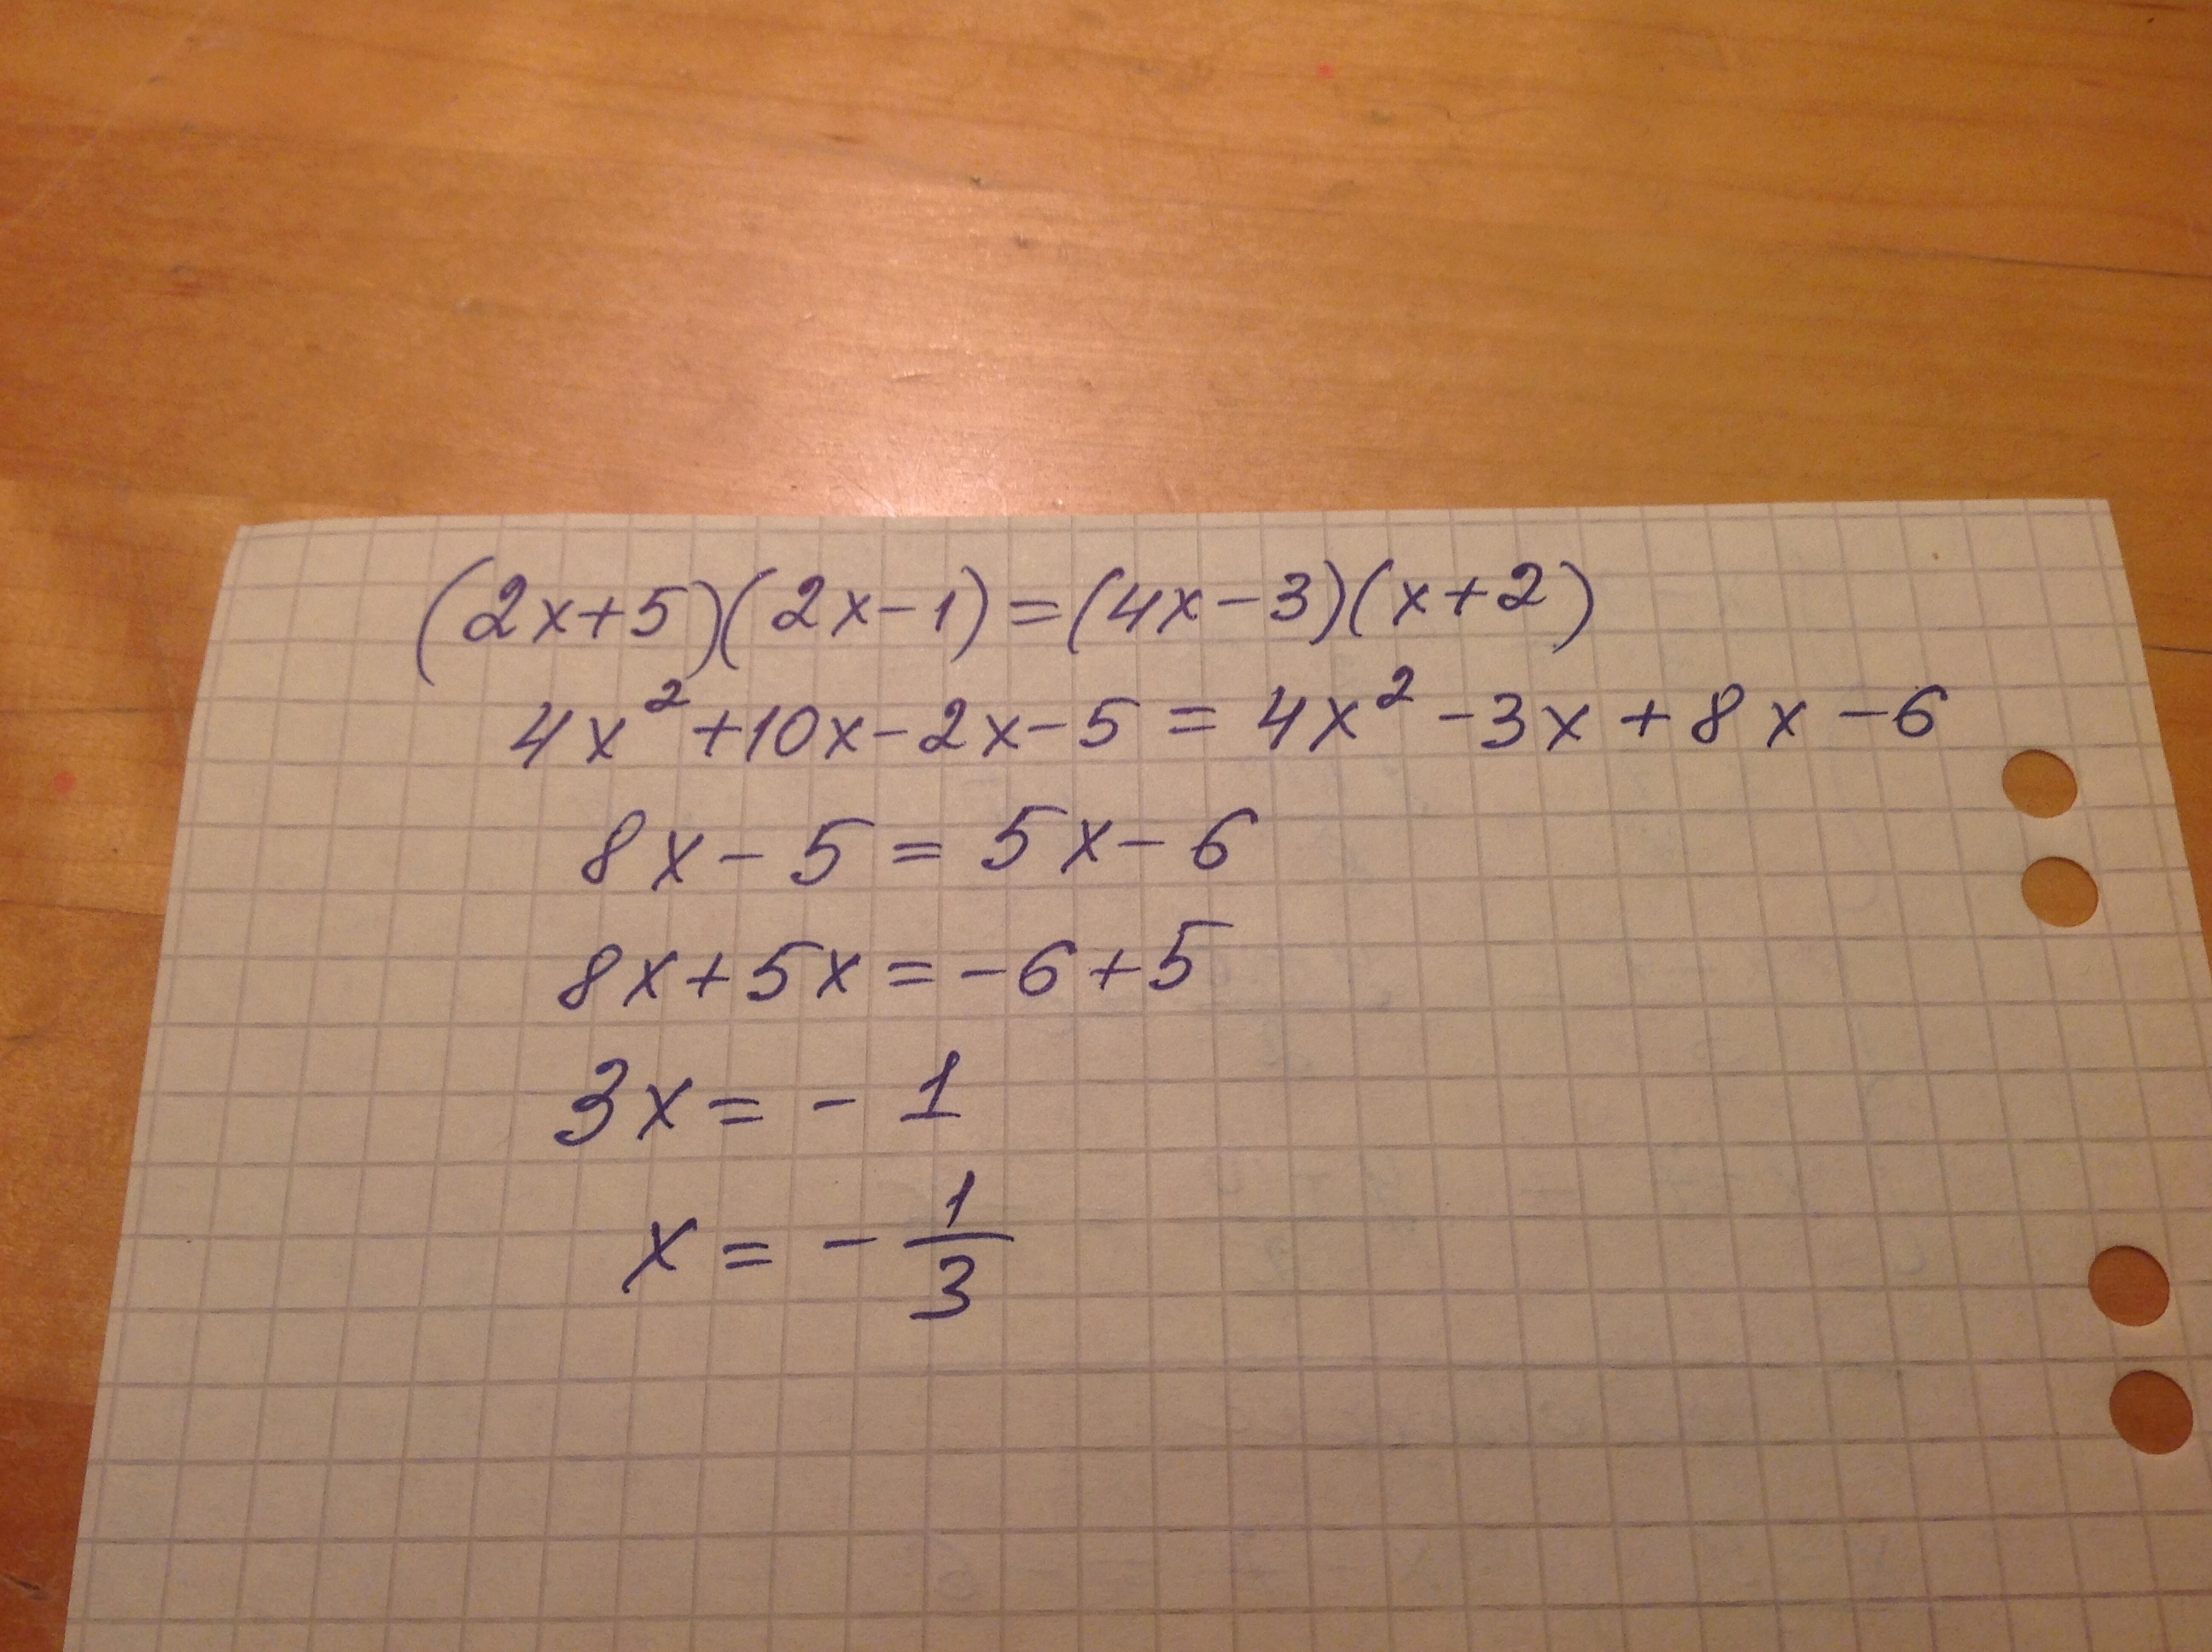 (2x+5)(2x-1)=(4x-3)(x+2)
4x²+10x-2x-5=4x²-3x+8x-6
8x-5=5x-6
8x+5x=-6+5
3x=-1
x=-1/3